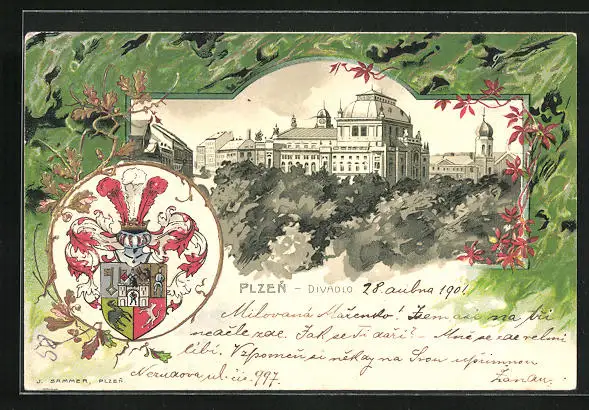 PLZEŇ – DIVADLO 28. 901
Milovaná Mařenko! Jsem asi na tři
neděle zde. Jak se Ti daří? – Mně se zde velmi
líbí. Vzpomeň si někdy na Tvou upřímnou
Nerudova ulice 997.
J. SAMMER, PLZEŇ.